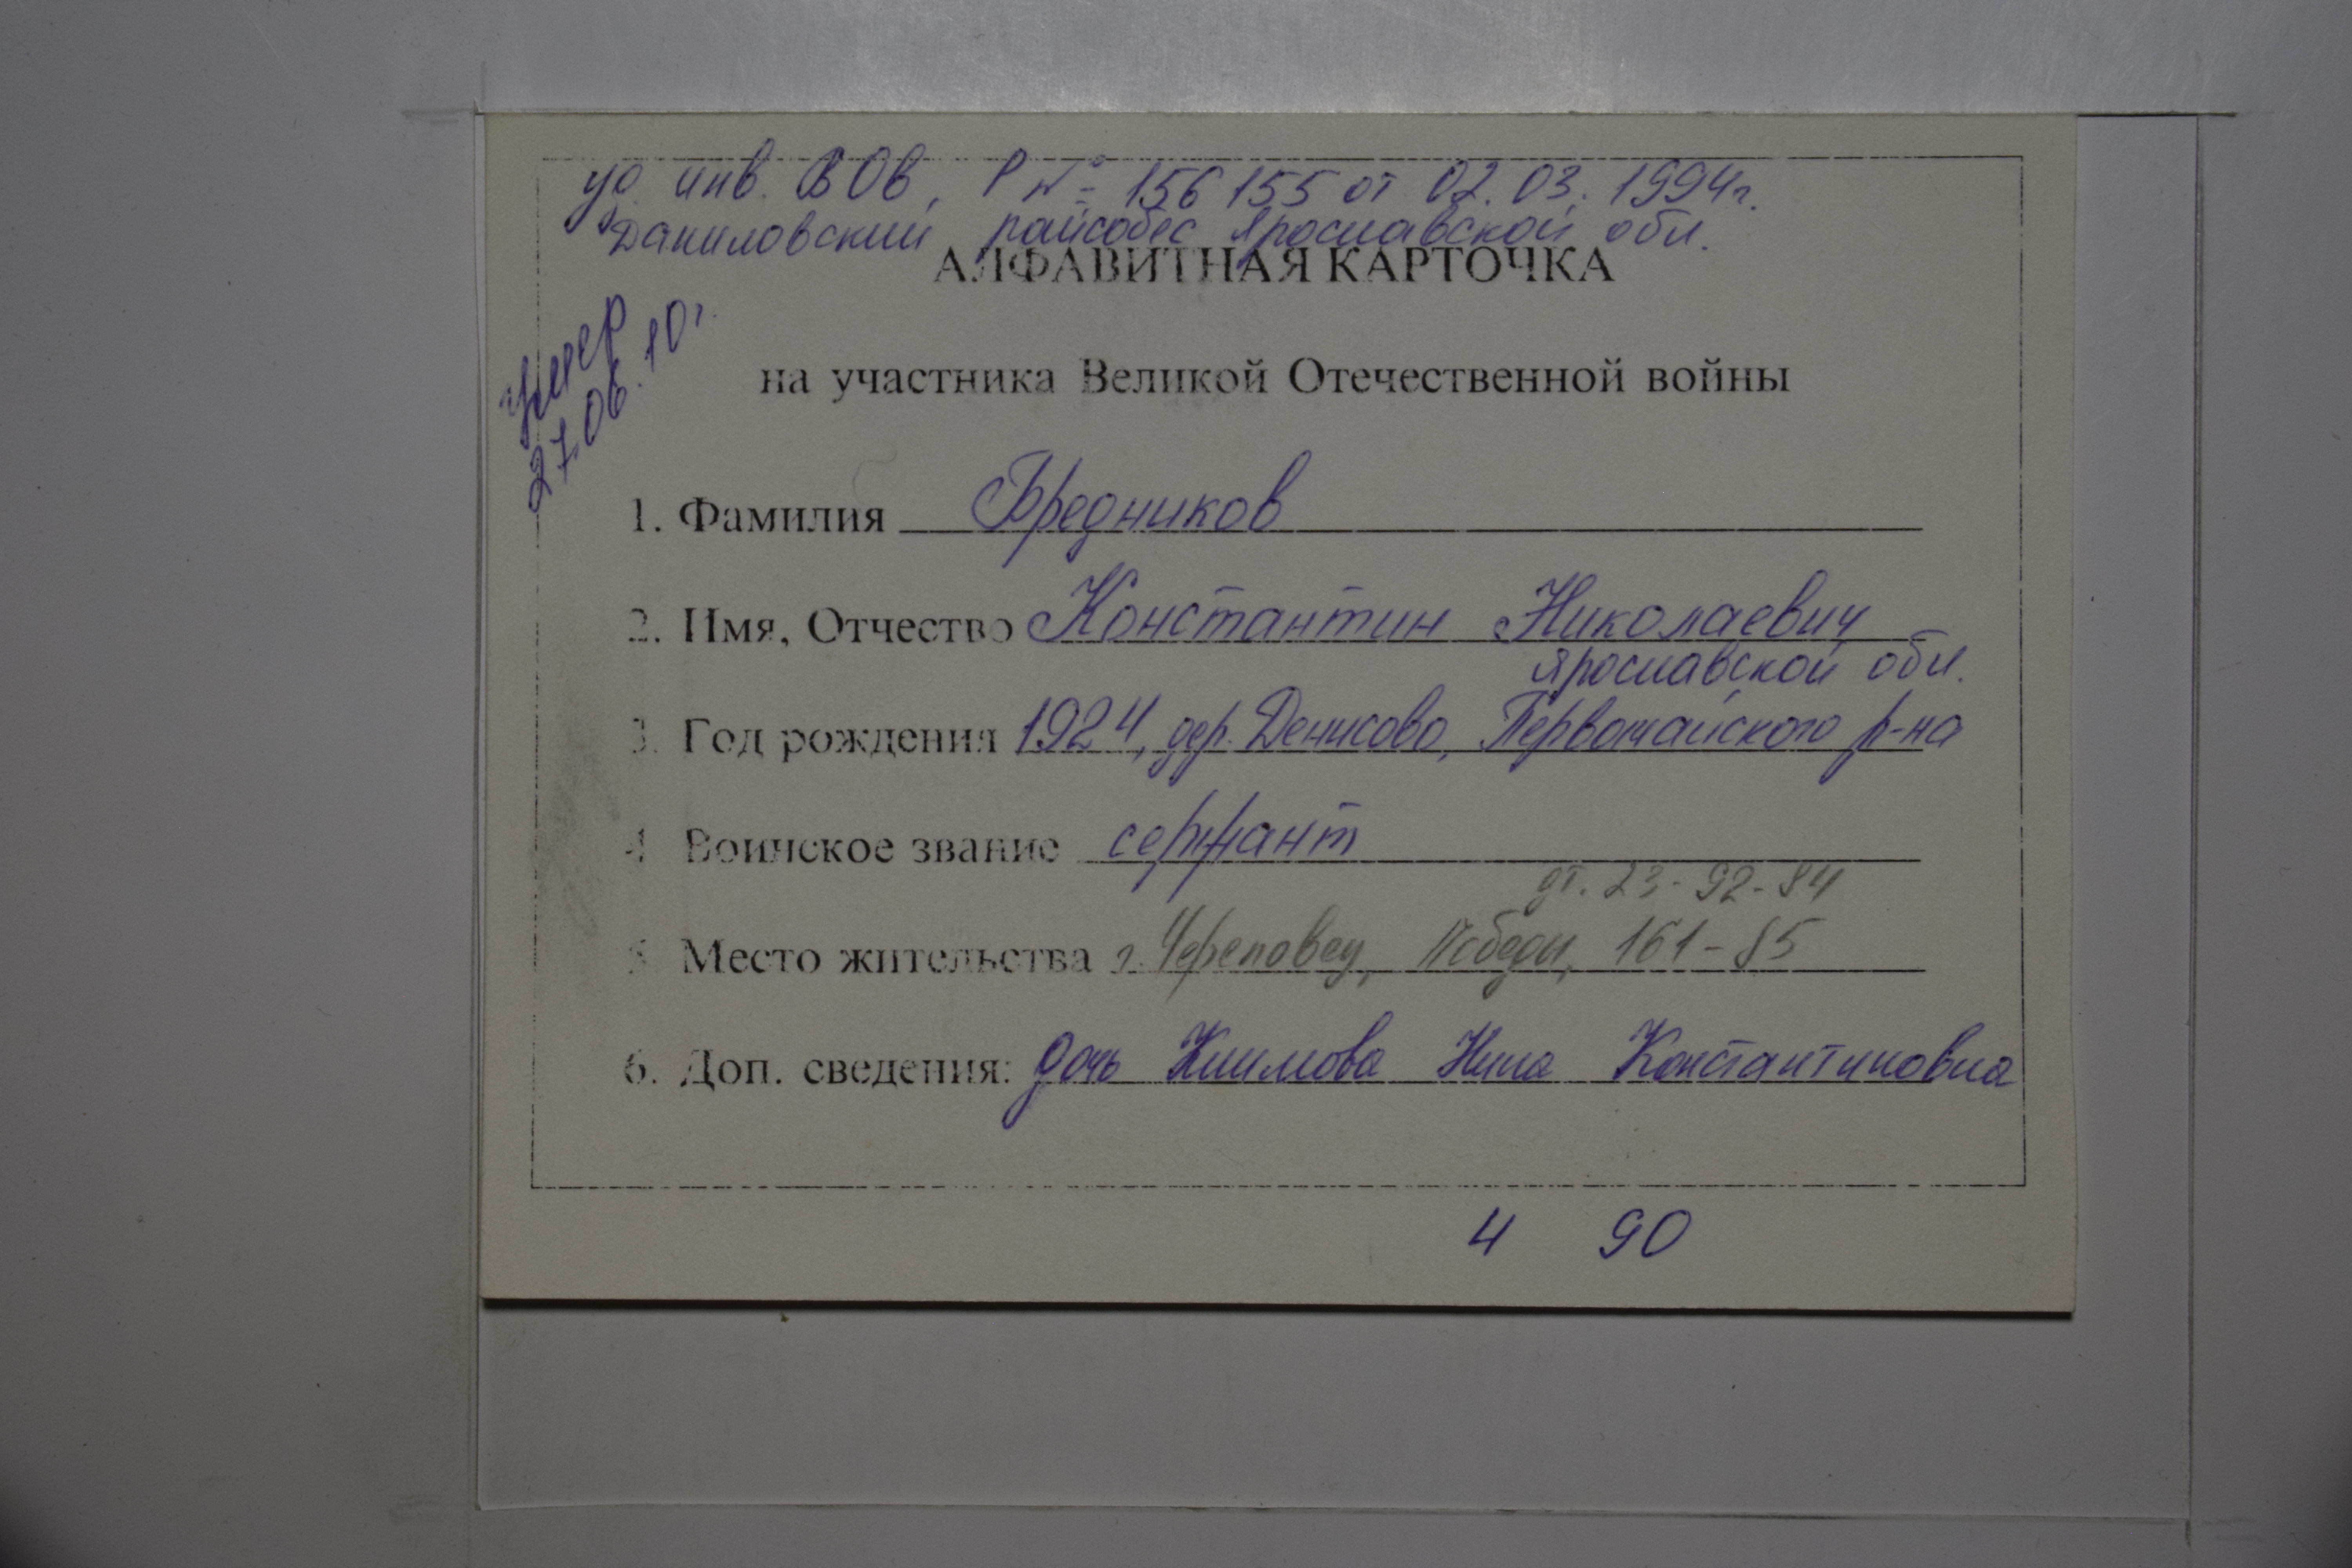 уд. инв. ВОв, Р № 156155 от 02.03.1994г.
Даниловский райсобес Ярославской обл.
АЛФАВИТНАЯ КАРТОЧКА
умер
27.06.10г.
на участника Великой Отечественной войны
1. Фамилия Бредников
2. Имя, Отчество Константин Николаевич
Ярославской обл.
3. Год рождения 1924, дер. Денисово, Первомайского р-на
4 Воинское звание сержант
дт. 23-92-84
5 Место жительства г. Череповец, Победы, 161-85
6. Доп. сведения: дочь Климова Нина Константиновна
4 90